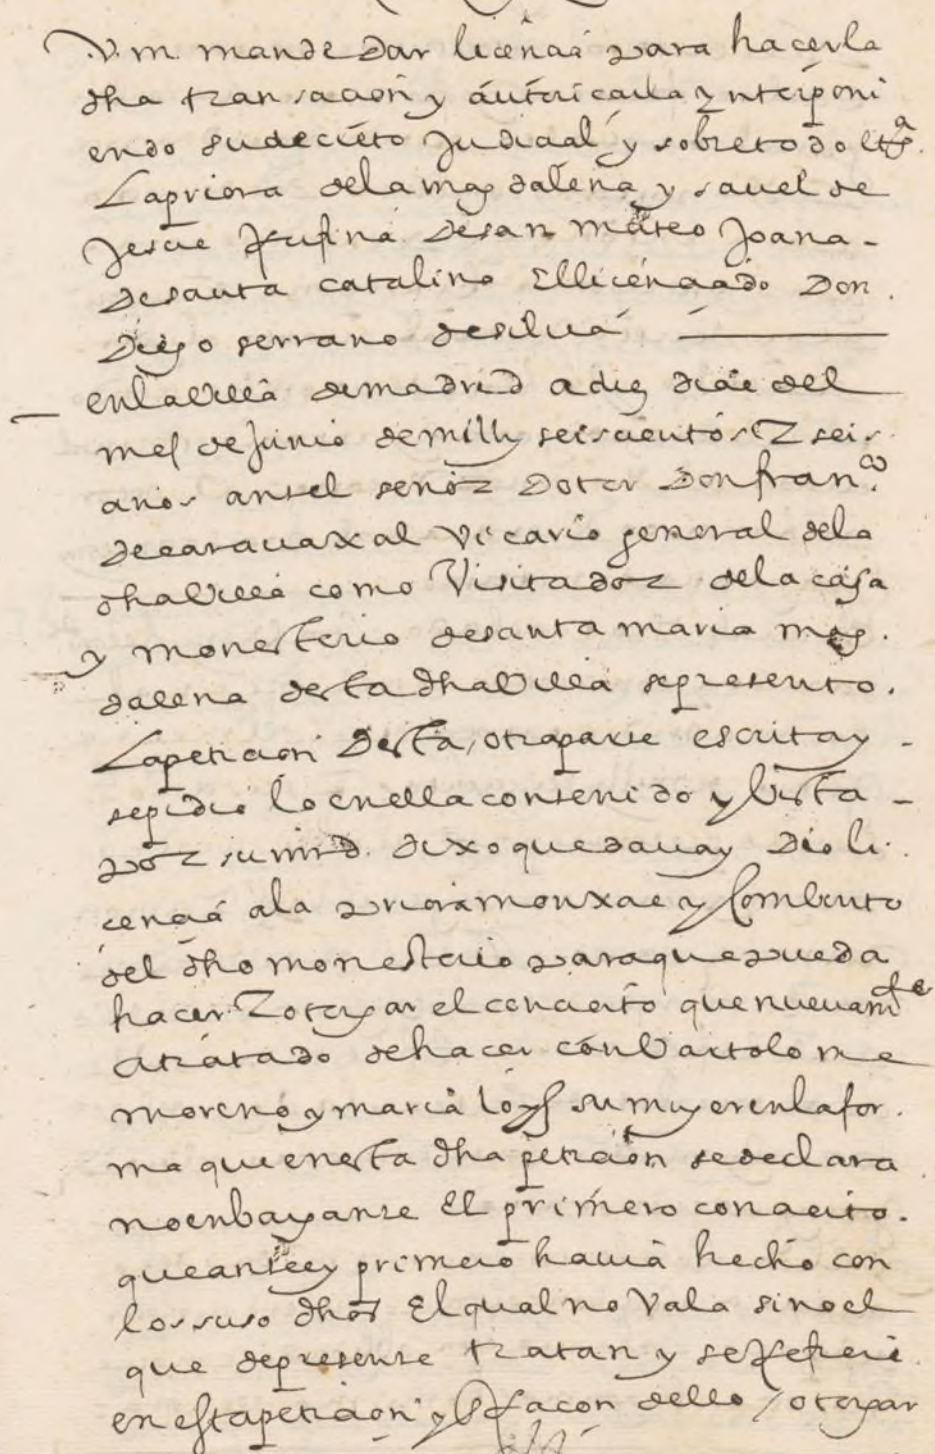 V. m. mande dar licencia para hacer la
dha transacion y autoricarla ynterponi
endo su decreto Judicial y sobre todo etta.
La priora de la magdalena ysavel de
Jesus Rufina de san mateo Joana -
de santa catalina El licenciado Don
Diego serrano de silva
en la Villa de madrid a diez dias del
mes de Junio de mill y seiscientos y seis
años antel señor Dotor Don franco.
de caravaxal Vicario general de la
dha Villa como Visitador de la casa
y monesterio de santa maria mag
dalena desta dha Villa se presento.
La peticion desta otra parte escrita y -
se pidio lo en ella contenido y Vista -
por su md. dixo que dava y Dio li
cencia a la priora monxas y Combento
del dho monesterio para que pueda
hacer y otorgar el concierto que nuevamte
a tratado de hacer con Vartolome
moreno y maria lopez su muger en la for
ma que en esta dha peticion se declara
no enbargante El primero concierto.
que antes y primero havia hecho con
los suso dhos El qual no Vala sino el
que de presente tratan y se Refiere
en esta peticion y En Racon dello / otorgar